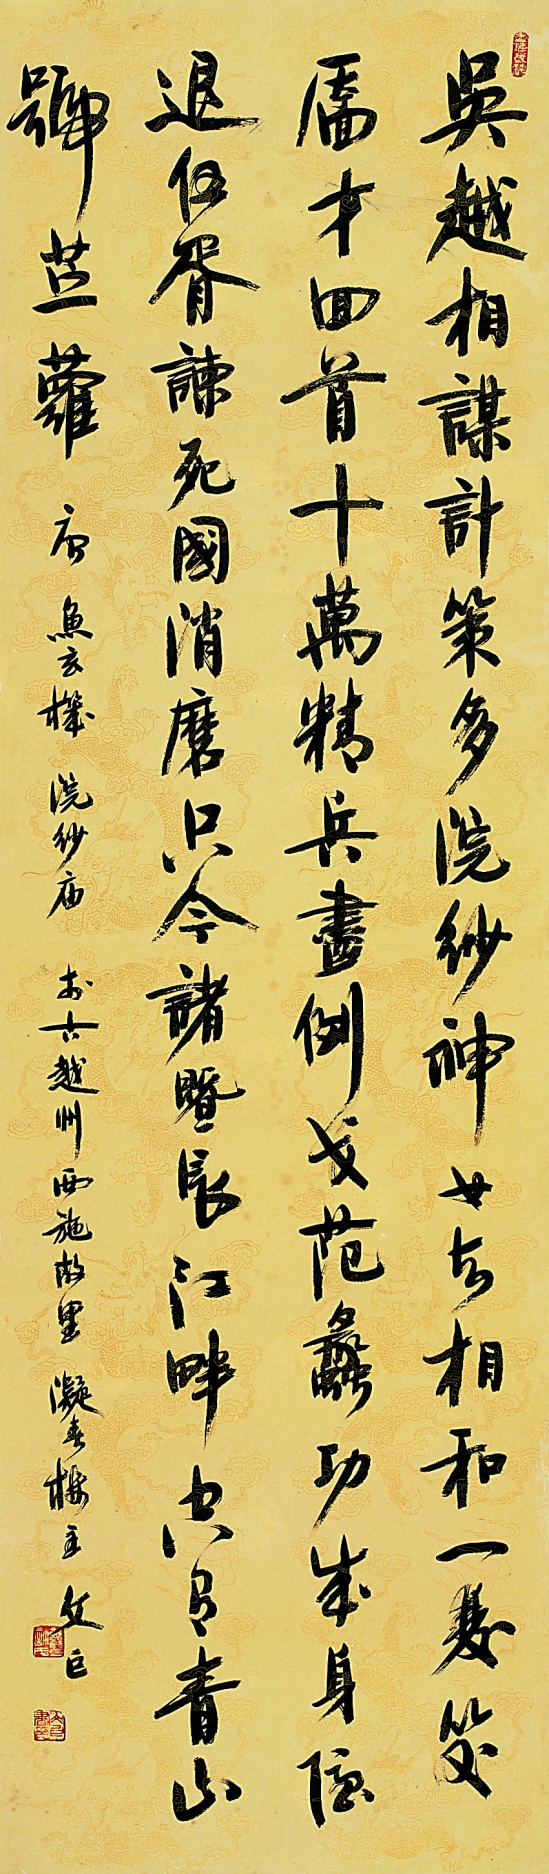 吳越相謀計策多浣紗神女去相和一雙笑
靨才回首十萬精兵盡倒戈范蠡功成身隱
退伍胥諫死國消磨只今諸暨長江畔空有青山
號苎蘿 唐 魚玄機 浣紗廟 於古越州西施故里 凝春樓主 文巨